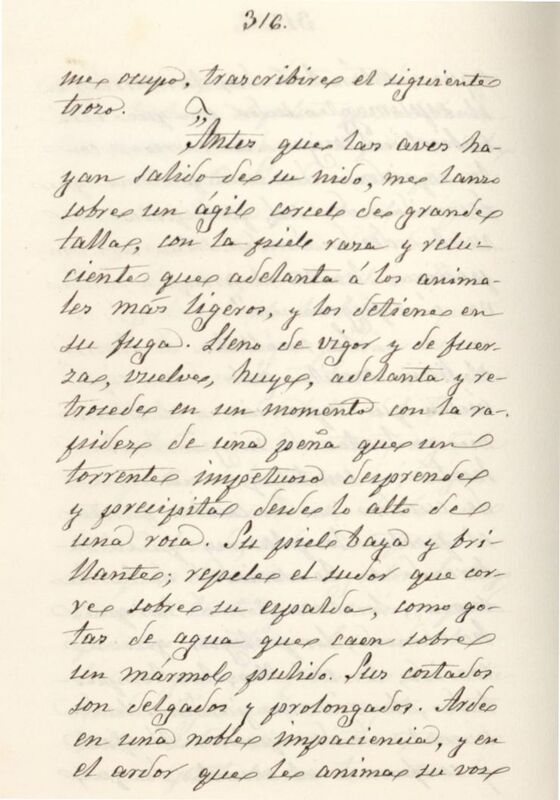 316.
me ocupo, trascribire el siguiente
troso.
"Antes que las aves ha-
yan salido de su nido, me lanzo
sobre un ágil corcel de grande
talla, con la piel raza y relu-
ciente que adelanta á los anima-
les más ligeros, y los detiene en
su fuga. Lleno de vigor y de fuer-
za, vuelve, huye, adelanta y re-
trosede en un momento con la ra-
pidez de una peña que un
torrente impetuoso desprende
y precipita desde lo alto de
una roca. Su piel baya y bri-
llante; repele el sudor que cor-
re sobre su espalda, como go-
tas de agua que caen sobre
un mármol pulido. Sus costados
son delgados y prolongados. Arde
en una noble impaciencia, y en
el ardor que le anima su voz